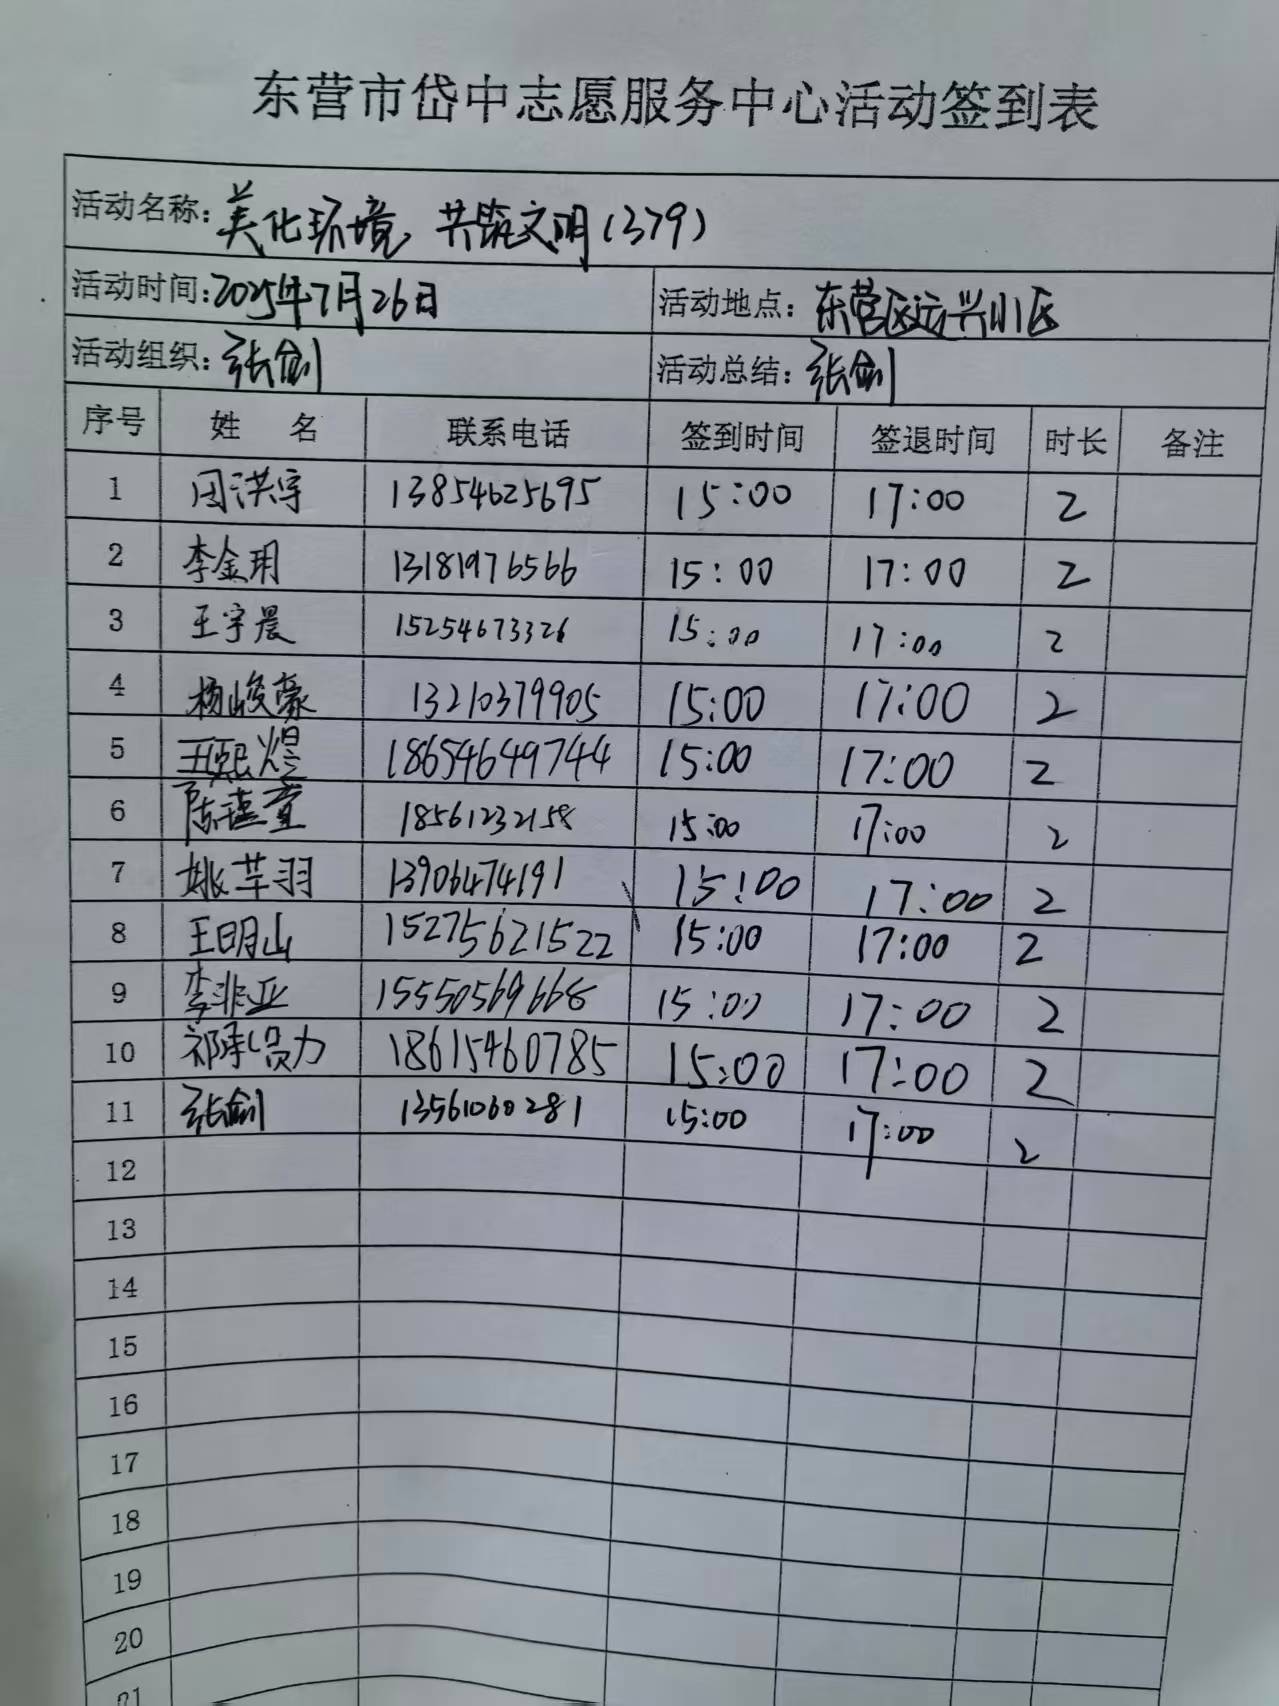 东营市岱中志愿服务中心活动签到表
活动名称:美化环境,共筑文明(379)
活动时间:2025年7月26日 活动地点:东营区远兴小区
活动组织:张剑 活动总结:张剑
序号 姓名 联系电话 签到时间 签退时间 时长 备注
1 周洪宇 13854625695 15:00 17:00 2
2 李金玥 13181976566 15:00 17:00 2
3 王宇晨 15254673326 15:00 17:00 2
4 杨峻豪 13210379905 15:00 17:00 2
5 王熙煜 18654649744 15:00 17:00 2
6 陈瑾萱 18561232158 15:00 17:00 2
7 姚芊羽 13906474191 15:00 17:00 2
8 王明山 15275621522 15:00 17:00 2
9 李非亚 15550569668 15:00 17:00 2
10 祁承 18615460785 15:00 17:00 2
11 张剑 13561060281 15:00 17:00 2
12
13
14
15
16
17
18
19
20
21